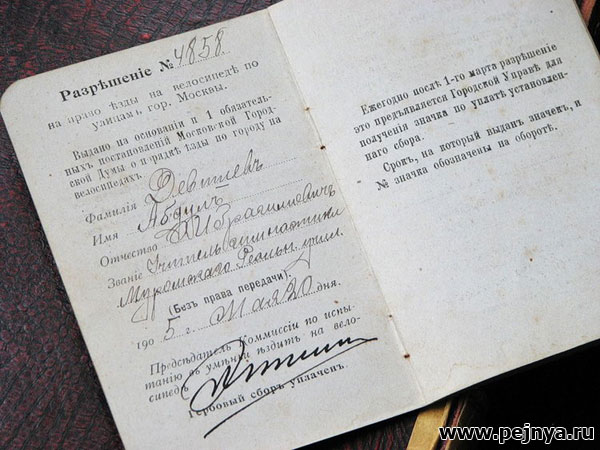 Разрѣшеніе № 4858.
на право ѣзды на велосипедѣ по
улицамъ гор. Москвы.
Выдано на основаніи п 1 обязатель-
ныхъ постановленій Московской Город-
ской Думы о порядкѣ ѣзды по городу на
велосипедахъ
Фамилія
Имя Абдулъ
Отчество Ибрагимовичъ
Званіе Учитель гимнастики
Муромскаго Реальн. учил.
(Безъ права передачи).
1905 г. Мая 20 дня.
Предсѣдатель Коммиссіи по испы-
танію въ умѣніи ѣздить на вело-
сипедѣ
Гербовый сборъ уплаченъ.
Ежегодно послѣ 1-го марта разрѣшеніе
это предъявляется Городской Управѣ для
полученія значка по уплатѣ установлен-
наго сбора.
Срокъ, на который выданъ значекъ, и
№ значка обозначены на оборотѣ.
www.pejnya.ru